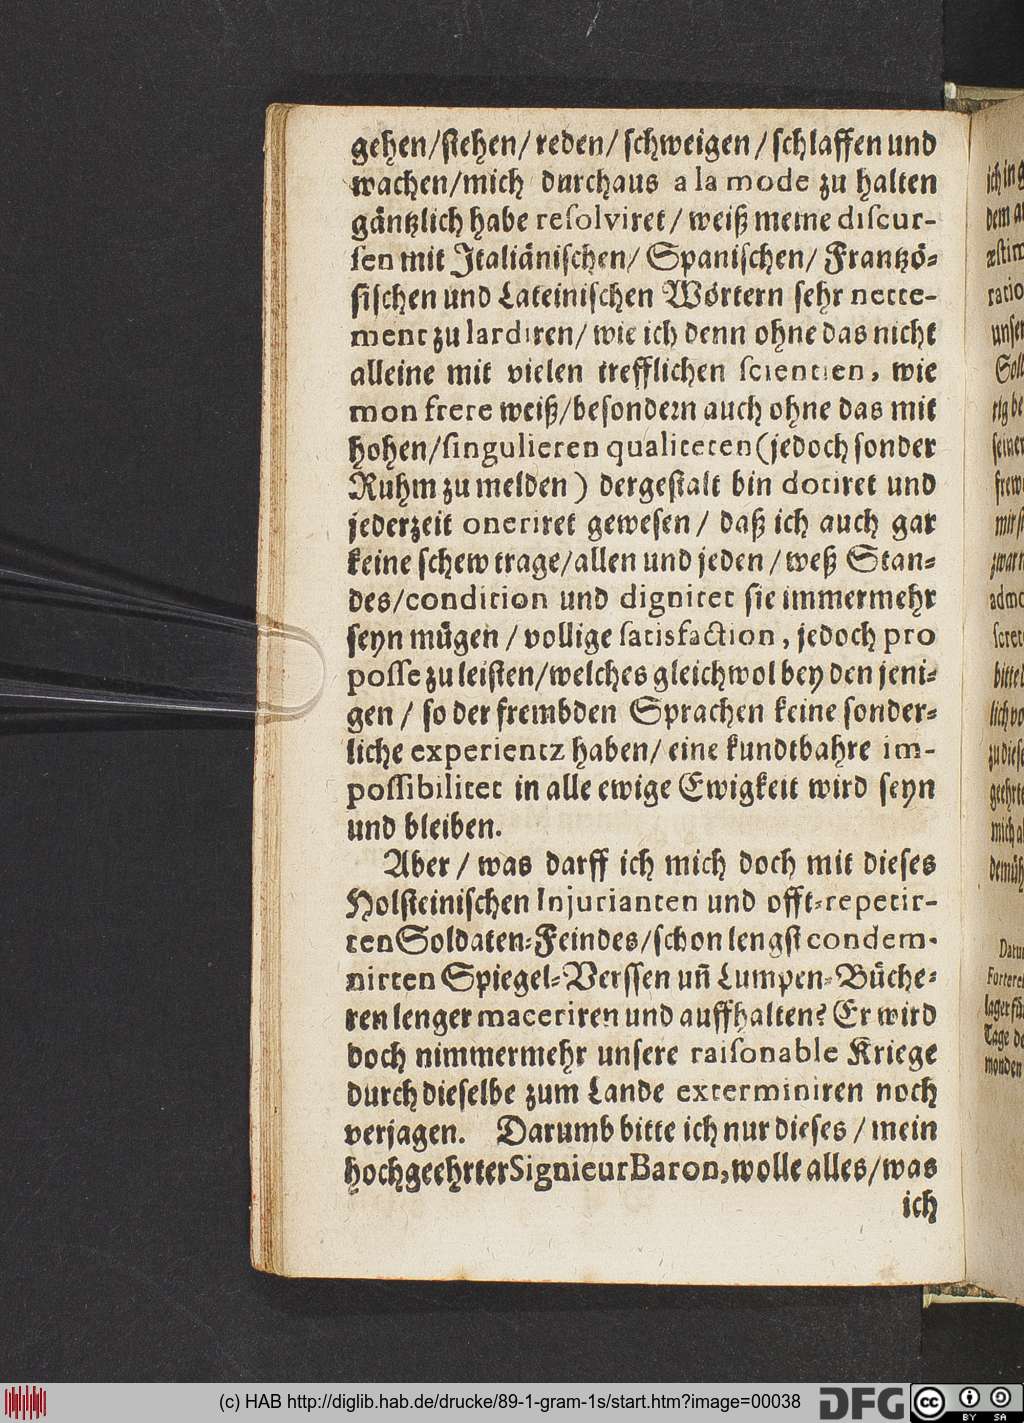 gehen/stehen/reden/schweigen/schlaffen und
wachen/mich durchaus a la mode zu halten
gäntzlich habe resolviret/weiß meine discur-
sen mit Italiänischen/Spanischen/Frantzö-
sischen und Lateinischen Wörtern sehr nette-
ment zu lardiren/wie ich denn ohne das nicht
alleine mit vielen trefflichen scientien, wie
mon frere weiß/besondern auch ohne das mit
hohen/singulieren qualiteten (jedoch sonder
Ruhm zu melden) dergestalt bin dotiret und
jederzeit oneriret gewesen/daß ich auch gar
keine schew trage/allen und jeden/weß Stan-
des/condition und dignitet sie immermehr
seyn mügen/vollige satisfaction, jedoch pro
posse zu leisten/welches gleichwol bey den jeni-
gen/so der frembden Sprachen keine sonder-
liche experientz haben/eine kundtbahre im-
possibilitet in alle ewige Ewigkeit wird seyn
und bleiben.
Aber/was darff ich mich doch mit dieses
Holsteinischen Injurianten und offt-repetir-
ten Soldaten-Feindes/schon lengst condem-
nirten Spiegel-Verssen uñ Lumpen-Büche-
ren lenger maceriren und auffhalten? Er wird
doch nimmermehr unsere raisonable Kriege
durch dieselbe zum Lande exterminiren noch
verjagen. Darumb bitte ich nur dieses/mein
hochgeehrter Signieur Baron, wolle alles/was
ich
ich in g
dem a
æstim
ratio
unser
Sold
rig be
seiner
frew
mir s
zwar n
admo
scret
bitte
lich vo
zu diese
geehrte
mich a
demüh
Datu
Forteres
lager für
Tage de
monden
(c) HAB http://diglib.hab.de/drucke/89-1-gram-1s/start.htm?image=00038
DFG
cc
BY SA